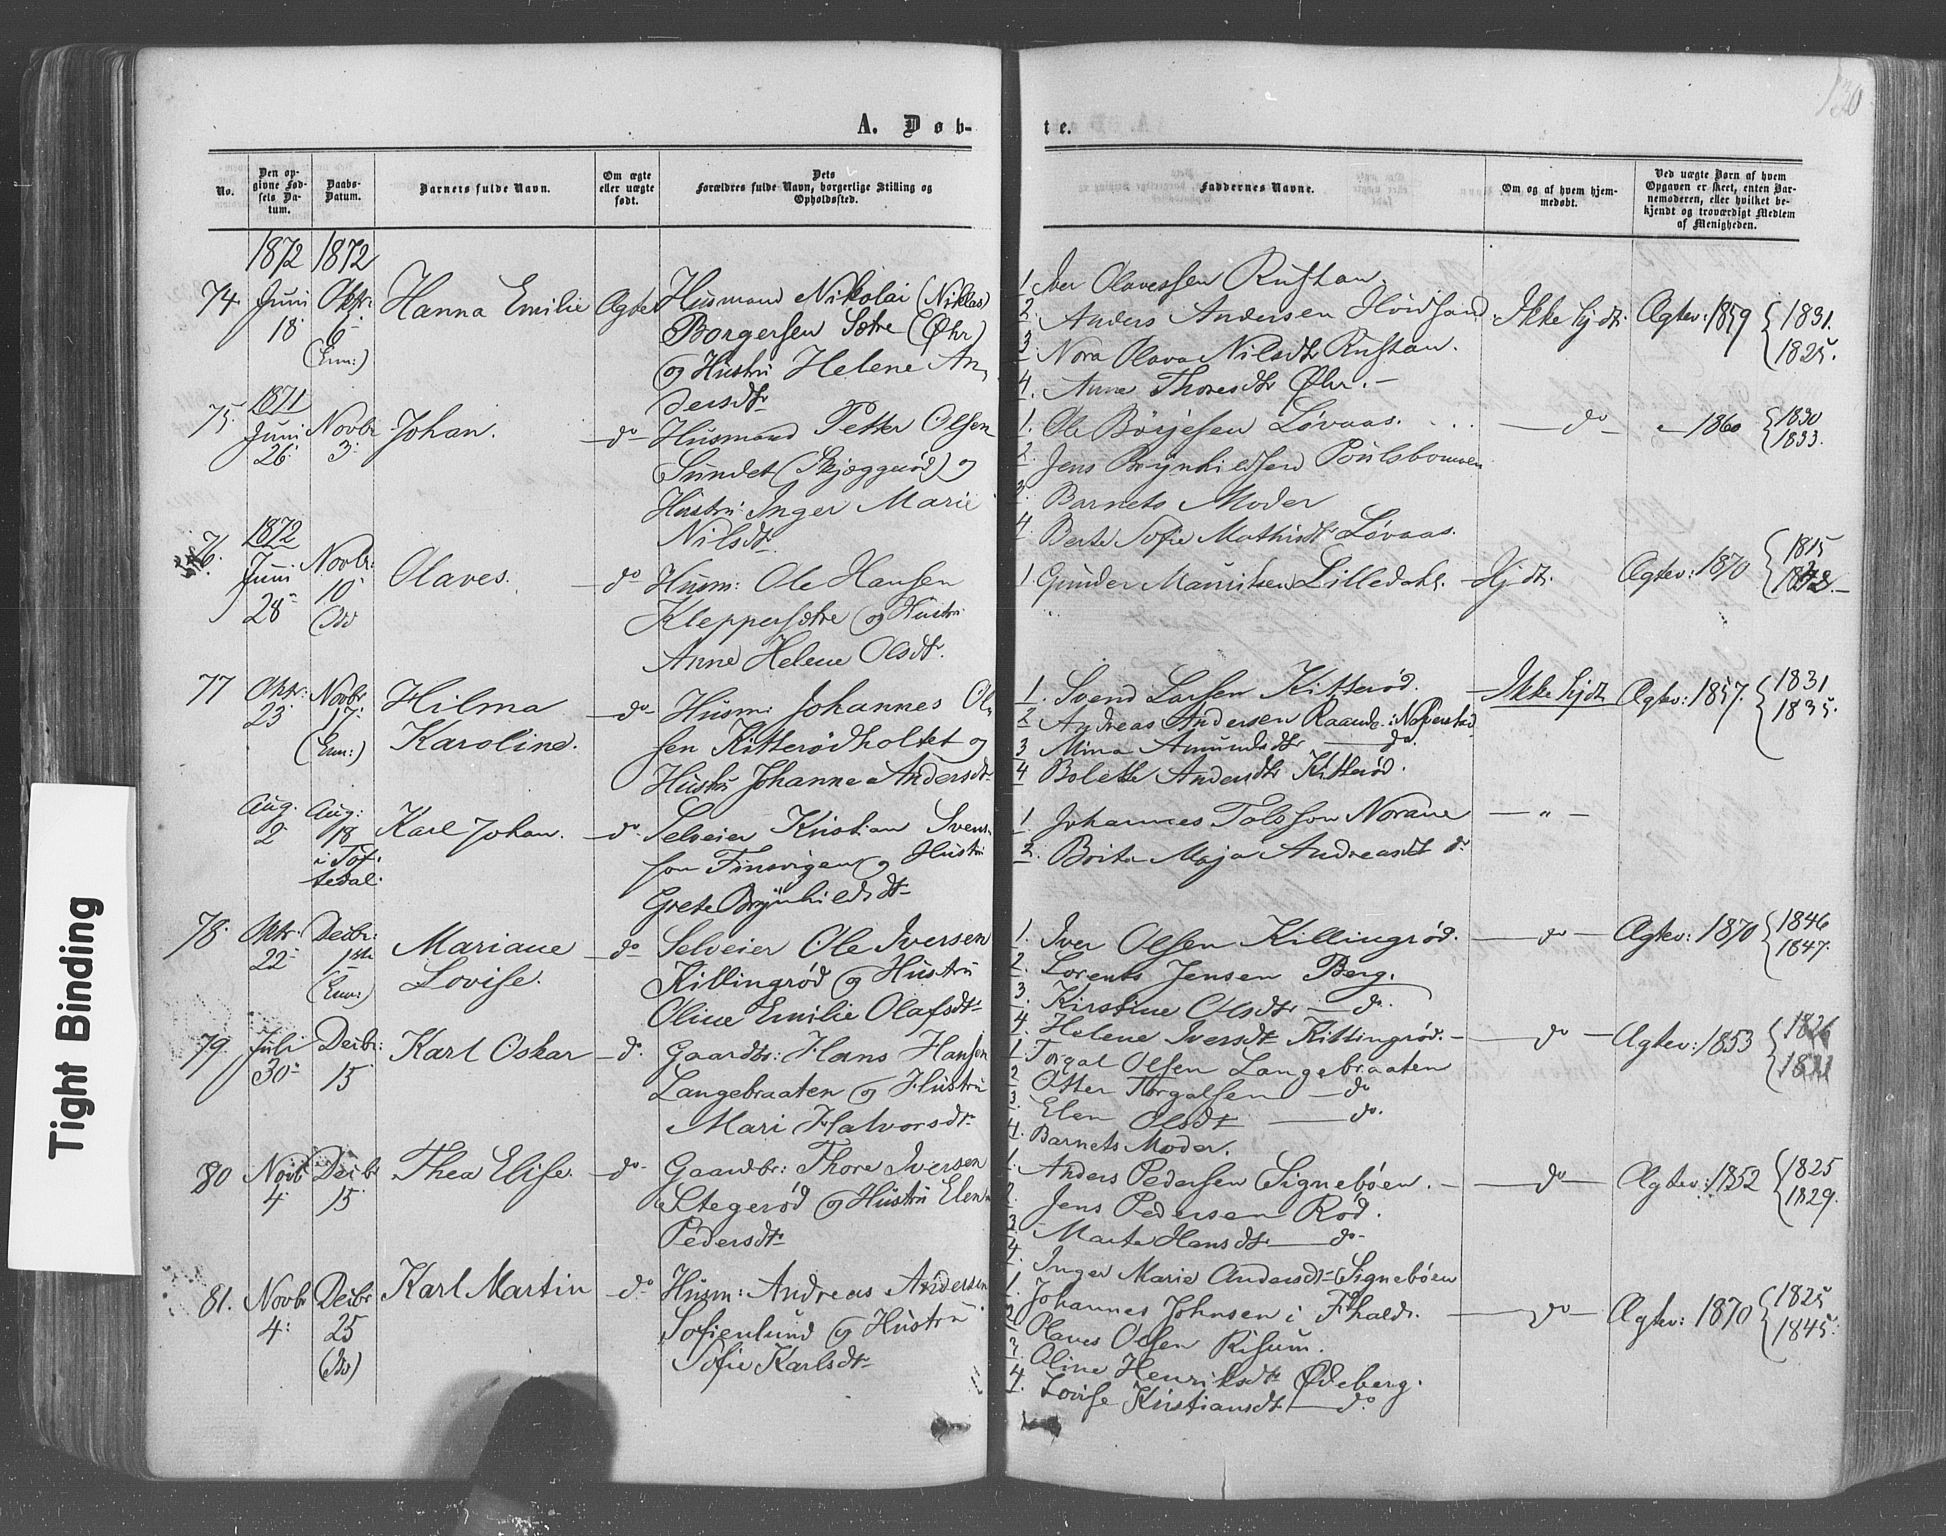 130
A. Døb-
te.
No.
Den op-
givne Fød-
sels Da-
tum.
Daabs-
Datum.
Barnets fulde Navn.
Om ægte
eller uægte
født.
Dets
Forældres fulde Navn, borgerlige Stilling og
Opholdssted.
Faddernes Navne.
Om og af hvem hjem-
medøbt.
Ved uægte Børn af hvem
Opgaven er skeet, enten Bar-
nemoderen, eller hvilket be-
kjendt og troværdigt Medlem
af Menigheden.
1872 1872
74. Juni Oktr: Hanna Emilie Ægte Husmand Nikolai (Niklas)
18 6 Borgersen Sætre (Øhr)
(Enn:) og Hustru Helene An-
dersdtr
1. Iver Olavessen Rustan
2. Anders Andersen Hvidsand Ikke hjdt. Ægtev: 1859 {1831.
3. Nora Olava Nilsdtr Rustan. 1825.
4. Anne Thoresdtr Øhr. -
1871
75. Juni Novbr Johan. do Husmand Petter Olsen
26 3 Sundet (Skjæggerød) og
Hustru: Inger Marie
Nilsdtr
1. Ole Børjesen Løvaas. do - 1860 {1830
1833.
2. Jens Brynhildsen Poulsbommen
3. Barnets Moder
4. Berte Sofie Mathisdtr Løvaas.
1872
76. Juni Novbr: Olaves. do Husm: Ole Hansen
28 10 Kleppersætre og Hustru
(Do) Anne Helene Olsdtr.
1. Gunder Mauritsen Lilledahl. Hjdt. Ægtev: 1870 {1815
77 Oktr: Novbr Hilma do Husm: Johannes Ol-
23 17. Karoline. sen Kitterødholtet og
(Enn:) Hustru Johanne Andersdtr
1. Svend Larsen Kitterød. Ikke hjdt. Ægtev: 1857. {1831
2 Andreas Andersen Raanes i Næverstad 1835.
3 Mina Amundsdtr do.
4 Bolette Andersdtr Kitterød.
Aug. Aug: Karl Johan. do Selveier Kristian Svens-
2 18 son Finsvigen og Hustru
i Tøf- Grete Brynhildsdtr
tedal.
1 Johannes Tolsson Norane - " -
2. Brita Maja Andreasdtr do
78. Oktr: Decbr: Mariane do Selveier Ole Iversen
22 1ste Lovise. Killingrød og Hustru
(Enn:) Oline Emilie Olafsdtr
1. Iver Olsen Killingrød. do Ægtev: 1870 {1846
2. Lorents Jensen Berg. 1847.
3. Kirstine Olsdtr do.
4. Helene Iversdtr Killingrød.
79. Juli Decbr: Karl Oskar do. Gaardbr: Hans Hansen
30 15 Langebraaten og Hustru
Mari Halvorsdtr
do Ægtev: 1853 {1826
1. Torgal Olsen Langebraaten
2. Otter Torgalsen do
3. Elen Olsdt do.
4. Barnets Moder.
80 Novb Decbr Thea Elise. do Gaardbr: Thore Iversen
4. 15 Stegerød og Hustru Elen
Pedersdtr
1. Anders Pedersen Signebøen. do Ægtev: 1852 {1825
2. Jens Pedersen Rød. 1829.
3. Marte Hansdtr do
4. Inger Marie Andersdtr Signebøen
81. Novbr Decbr Karl Martin do Husm: Andreas Andersen
4: 25 Sofienlund og Hustru
(Do) Sofie Karlsdtr
1. Johannes Johnsen i Fhald. do Ægtev: 1870 {1825
2. Olaves Olsen Risum. 1845.
3. Oline Henriksdtr Ødeberg.
4. Lovise Kristiansdtr do
Tight Binding